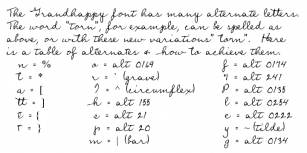 The Grandhappy font has many alternate letters.
The word "torn", for example, can be spelled as
above, or with these new variations "torn". Here
is a table of alternates & how to achieve them:
n = % o = alt 0169 f = alt 0174
t = * r = ` (grave) 7 = alt 241
a = [ ? = ^ (circumflex) P = alt 0138
tt = ] h = alt 155 l = alt 0254
t = { s = alt 21 e = alt 0222
r = } p = alt 20 y = ~ (tilde)
m = | (bar) g = alt 0134